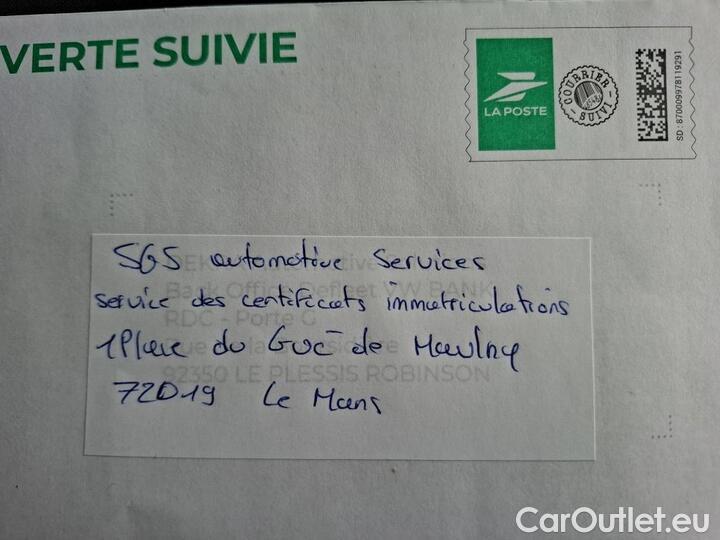 VERTE SUIVIE
LA POSTE
COURRIER SUIVI
SD : 870009978119291
SGS automotive Services
Service des certificats immatriculations
1 Place du Gué de Maulny
72019 Le Mans
RDC - Porte G
92350 LE PLESSIS ROBINSON
CarOutlet.eu